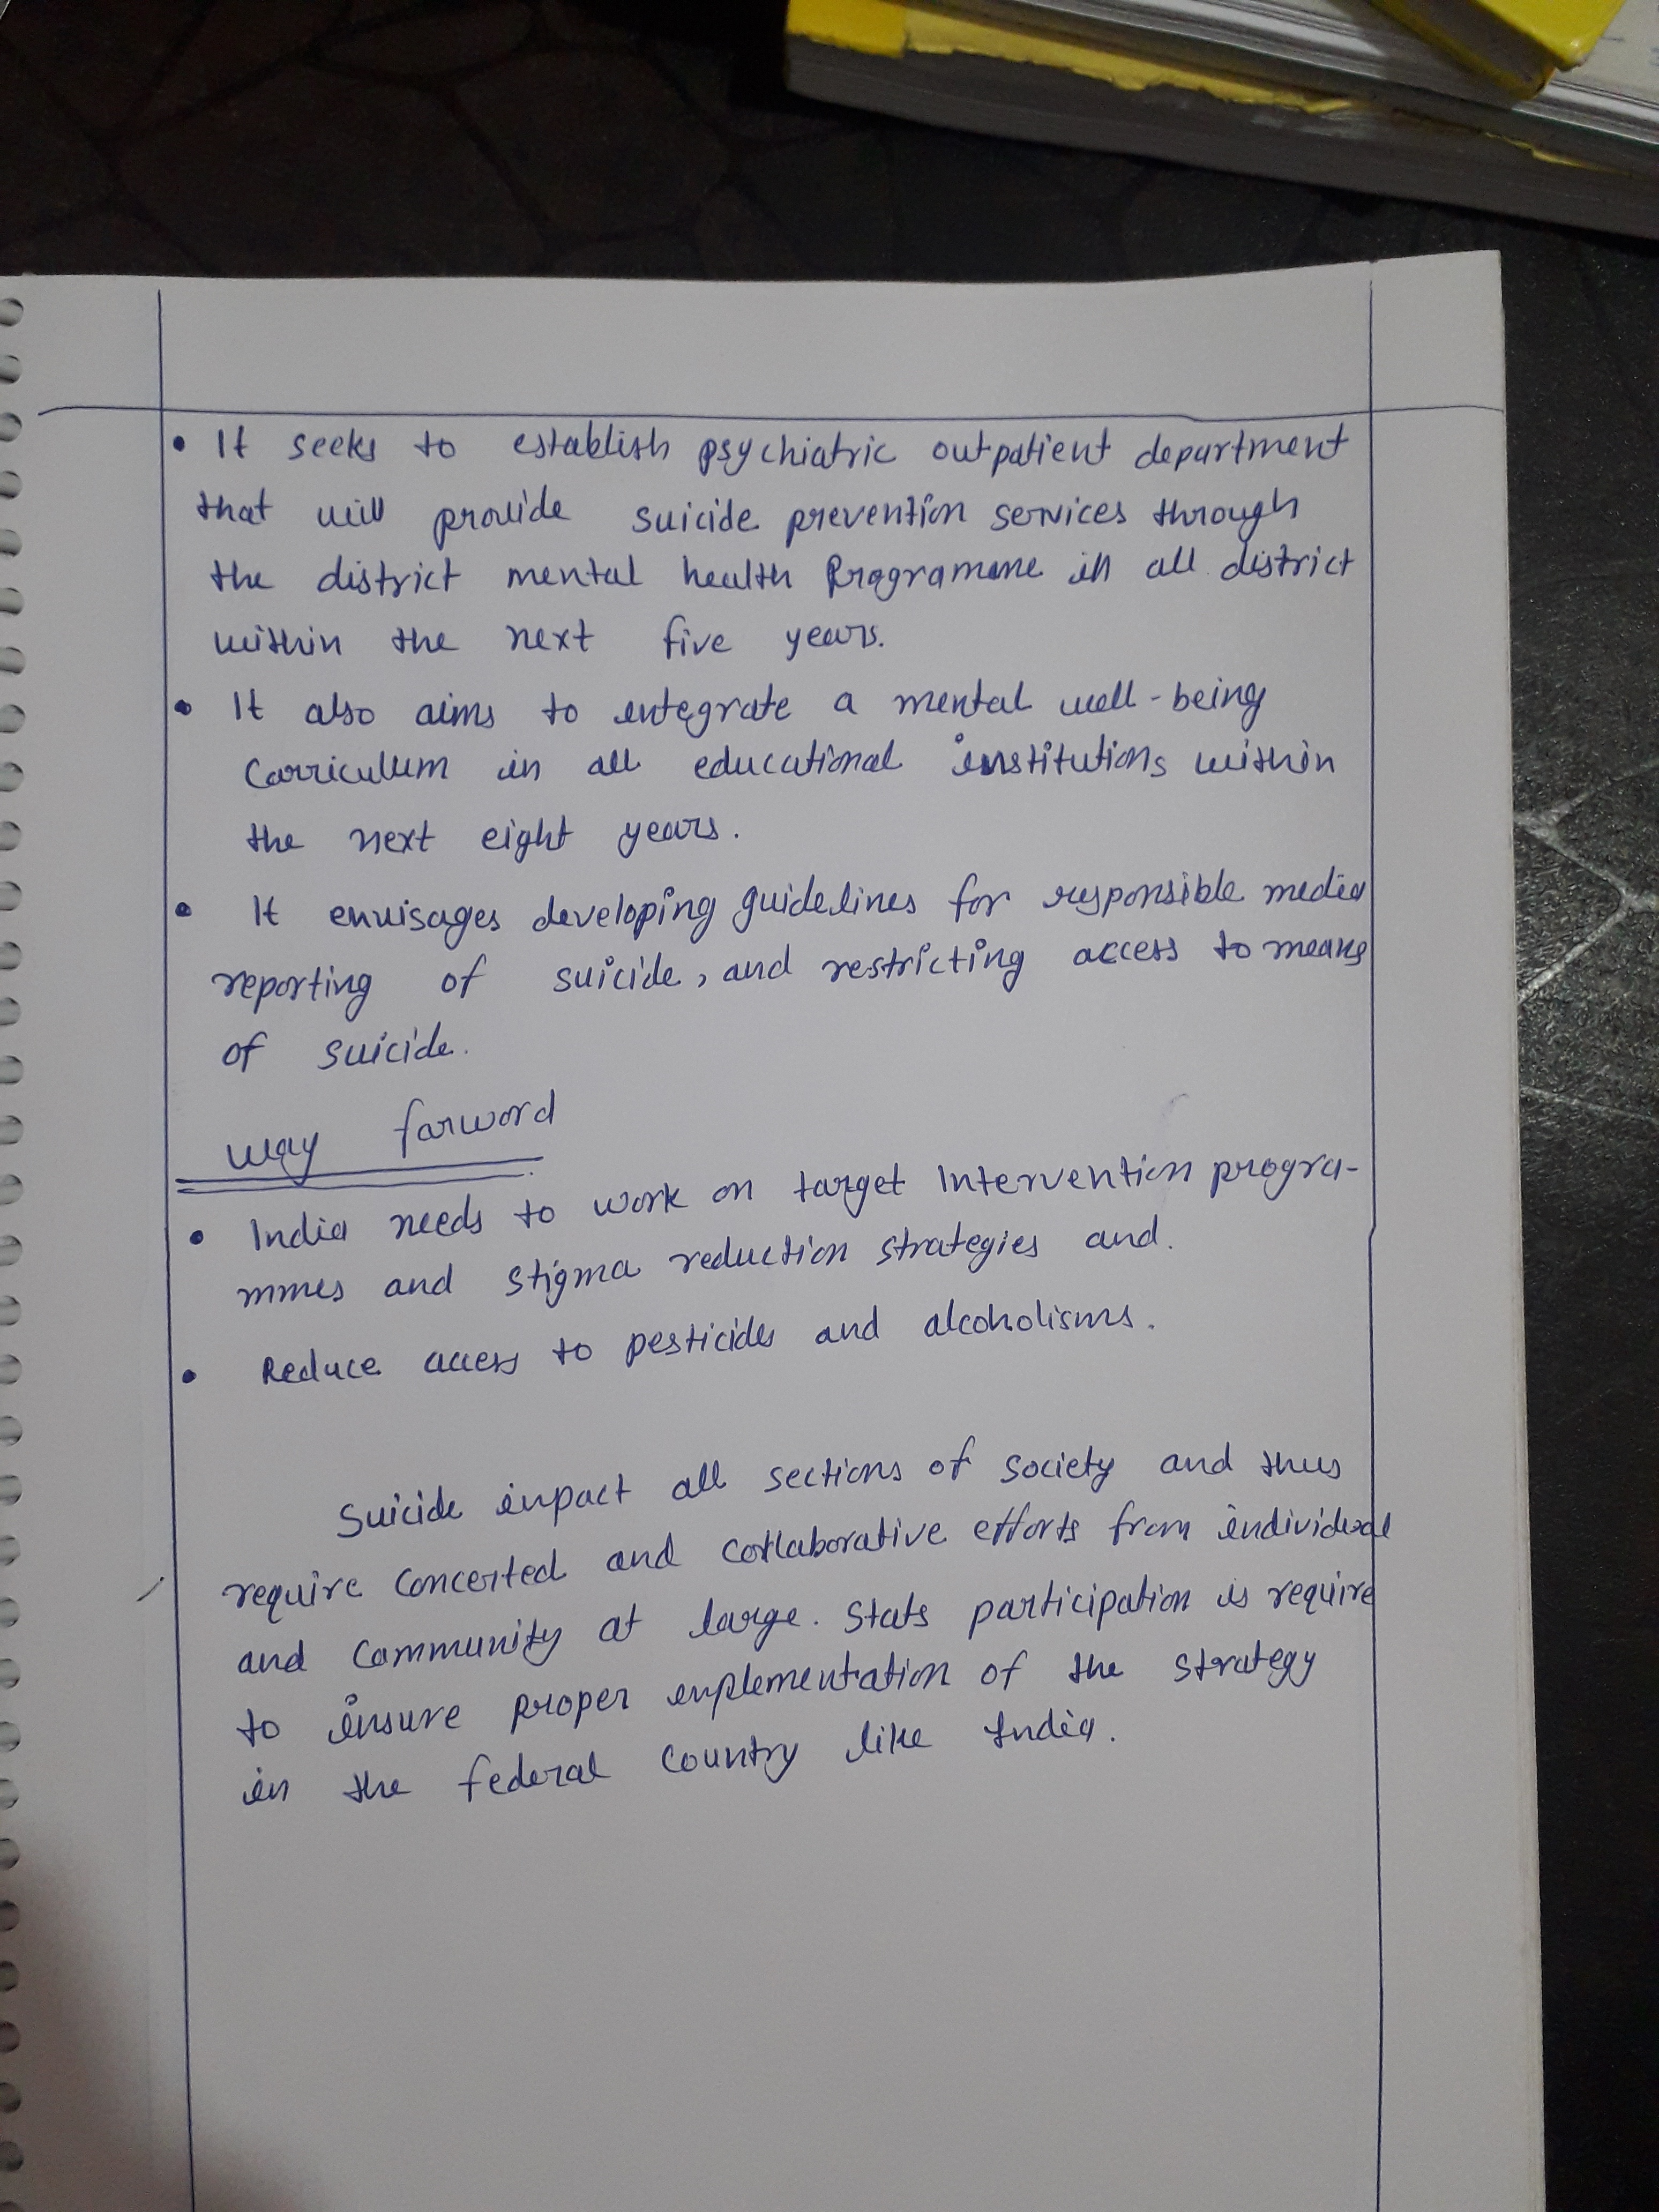 • It seeks to establish psychiatric outpatient department
that will provide suicide prevention services through
the district mental health Programme in all district
within the next five years.
• It also aims to integrate a mental well-being
Curriculum in all educational institutions within
the next eight years.
• It envisages developing guidelines for responsible media
reporting of suicide, and restricting access to means
of suicide.
way forword
• India needs to work on target Intervention progra-
mmes and stigma reduction strategies and.
• Reduce access to pesticides and alcoholisms.
Suicide impact all sections of society and thus
require concerted and collaborative efforts from individual
and Community at large. Stats participation is require
to insure proper implementation of the strategy
in the federal country like India.